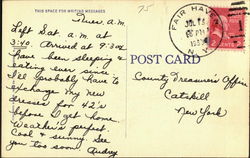 THIS SPACE FOR WRITING MESSAGES
75
Thurs. a.m.
Left Sat. a.m. at
3:40. Arrived at 9:30
have been sleeping &
eating ever since.
I'll probably have to
exchange my new
dresses for 42's
before I get home.
Weather's perfect.
Cool & sunny. See
you too soon. Audrey
FAIR HAVEN
POST CARD
County Treasurer's Office
Catskill
New York